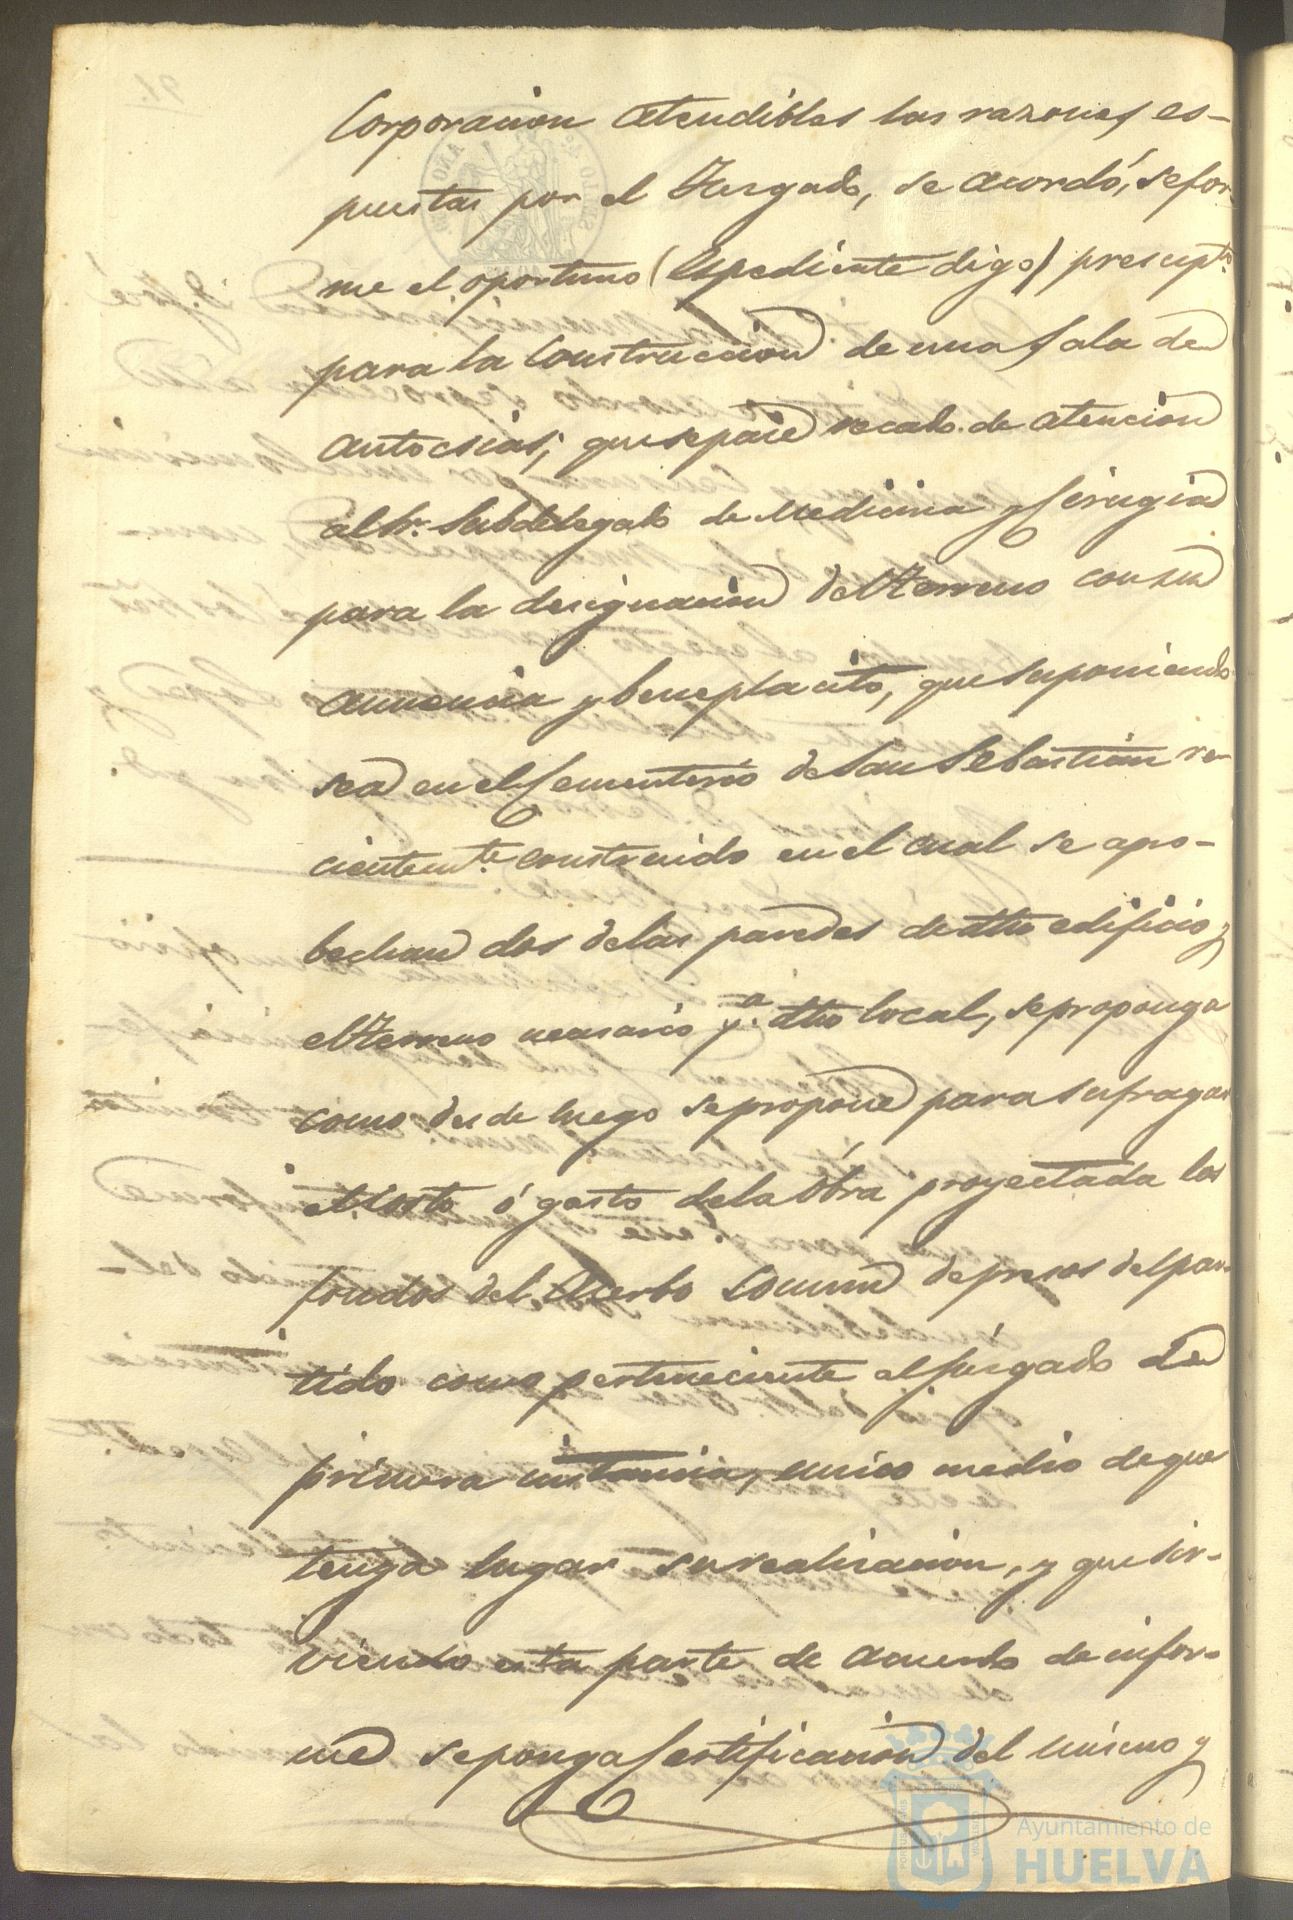 Corporacion atendibles las razones es-
puestas por el Juzgado, se acordó, se for-
me el oportuno (Espediente digo) presupto.
para la construccion de una sala de
autocsias; que se pase recado de atencion
al Sr. Subdelegado de Medicina y Cirugia
para la designacion del terreno con su
anuencia y beneplacito, que suponiendo
sea en el Cementerio de San Sebastian re-
cientemte. construido en el cual se apro-
bechan dos de las paredes de dho edificio y
el terreno necesario pa. dho local, se proponga
como desde luego se propone para sufragar
el costo ó gasto de la obra proyectada los
fondos del acerbo comun de presos del par-
tido como perteneciente al Juzgado de
primera instancia, unico medio de que
tenga lugar su realizacion, y que sir-
viendo esta parte de acuerdo de infor-
me se ponga Certificacion del mismo y
Ayuntamiento de
HUELVA